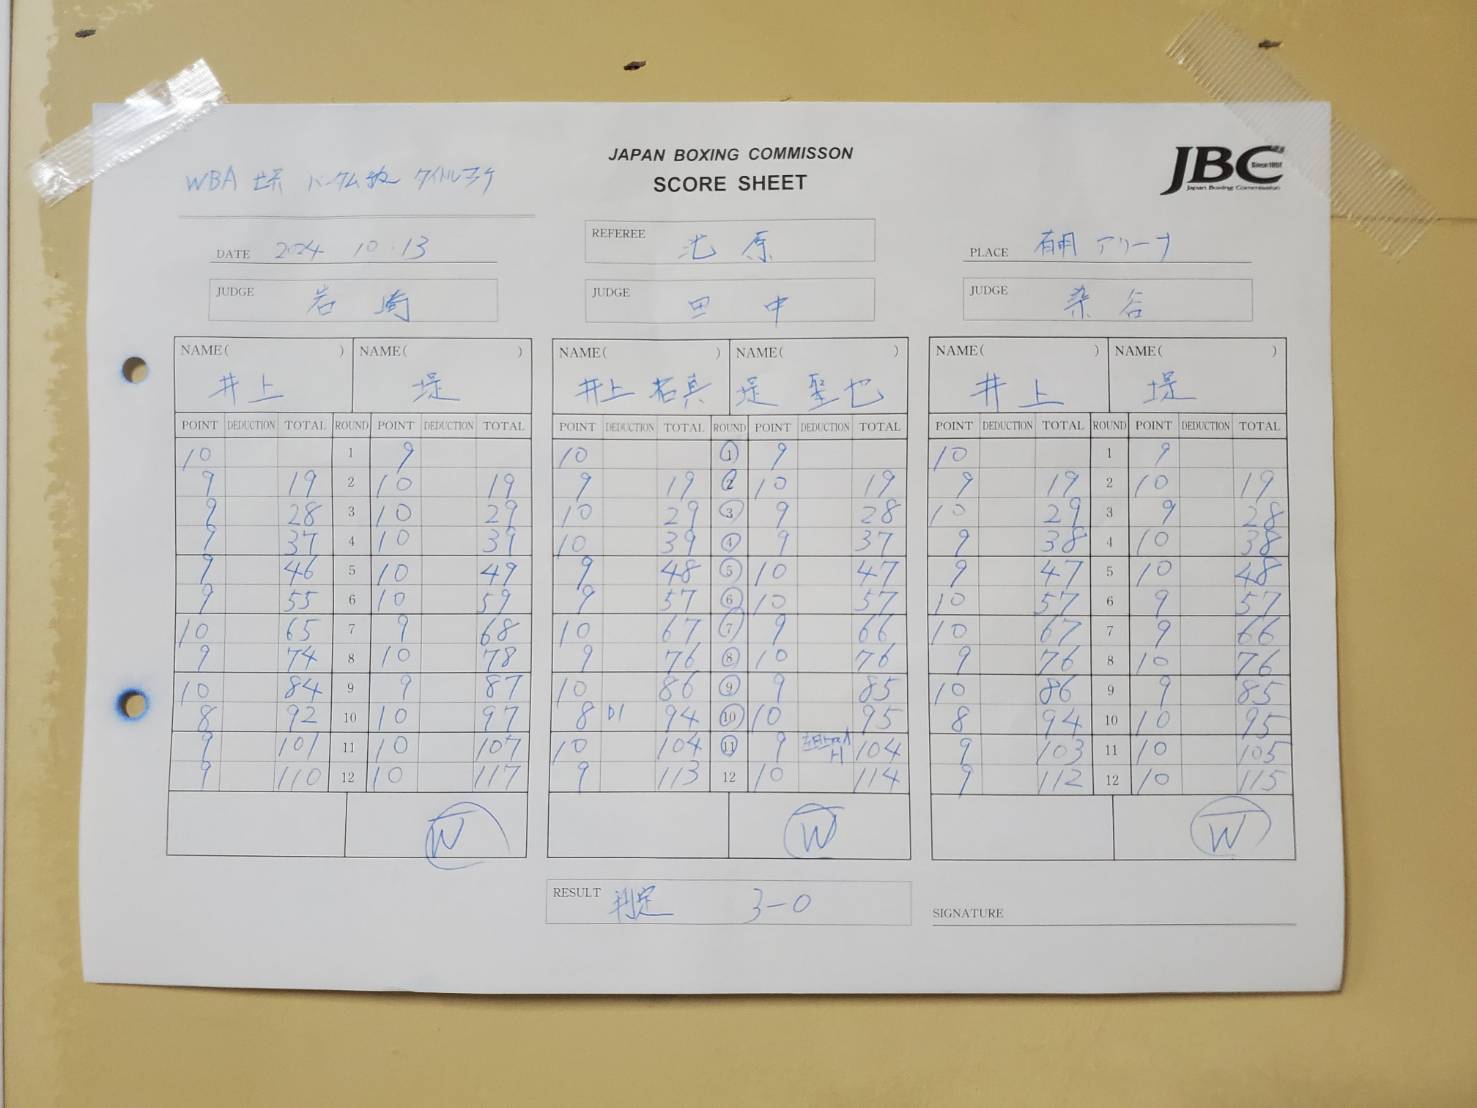 JAPAN BOXING COMMISSON
SCORE SHEET
JBC
Since 1952
Japan Boxing Commission
WBA 世界 バンタム級 タイトルマッチ
DATE 2024 10.13
REFEREE 北原
PLACE 有明アリーナ
JUDGE 岩崎
JUDGE 田中
JUDGE 染谷
NAME( ) NAME( ) NAME( ) NAME( ) NAME( ) NAME( )
井上 堤 井上拓真 堤聖也 井上 堤
POINT DEDUCTION TOTAL ROUND POINT DEDUCTION TOTAL POINT DEDUCTION TOTAL ROUND POINT DEDUCTION TOTAL POINT DEDUCTION TOTAL ROUND POINT DEDUCTION TOTAL
10 1 9 10 1 9 10 1 9
9 19 2 10 19 9 19 2 10 19 9 19 2 10 19
9 28 3 10 29 10 29 3 9 28 10 29 3 9 28
9 37 4 10 39 10 39 4 9 37 9 38 4 10 38
9 46 5 10 49 9 48 5 10 47 9 47 5 10 48
9 55 6 10 59 9 57 6 10 57 10 57 6 9 57
10 65 7 9 68 10 67 7 9 66 10 67 7 9 66
9 74 8 10 78 9 76 8 10 76 9 76 8 10 76
10 84 9 9 87 10 86 9 9 85 10 86 9 9 85
8 92 10 10 97 8 D1 94 10 10 95 8 94 10 10 95
9 101 11 10 107 10 104 11 9 104 9 103 11 10 105
9 110 12 10 117 9 113 12 10 114 9 112 12 10 115
W W W
RESULT 判定 3-0
SIGNATURE